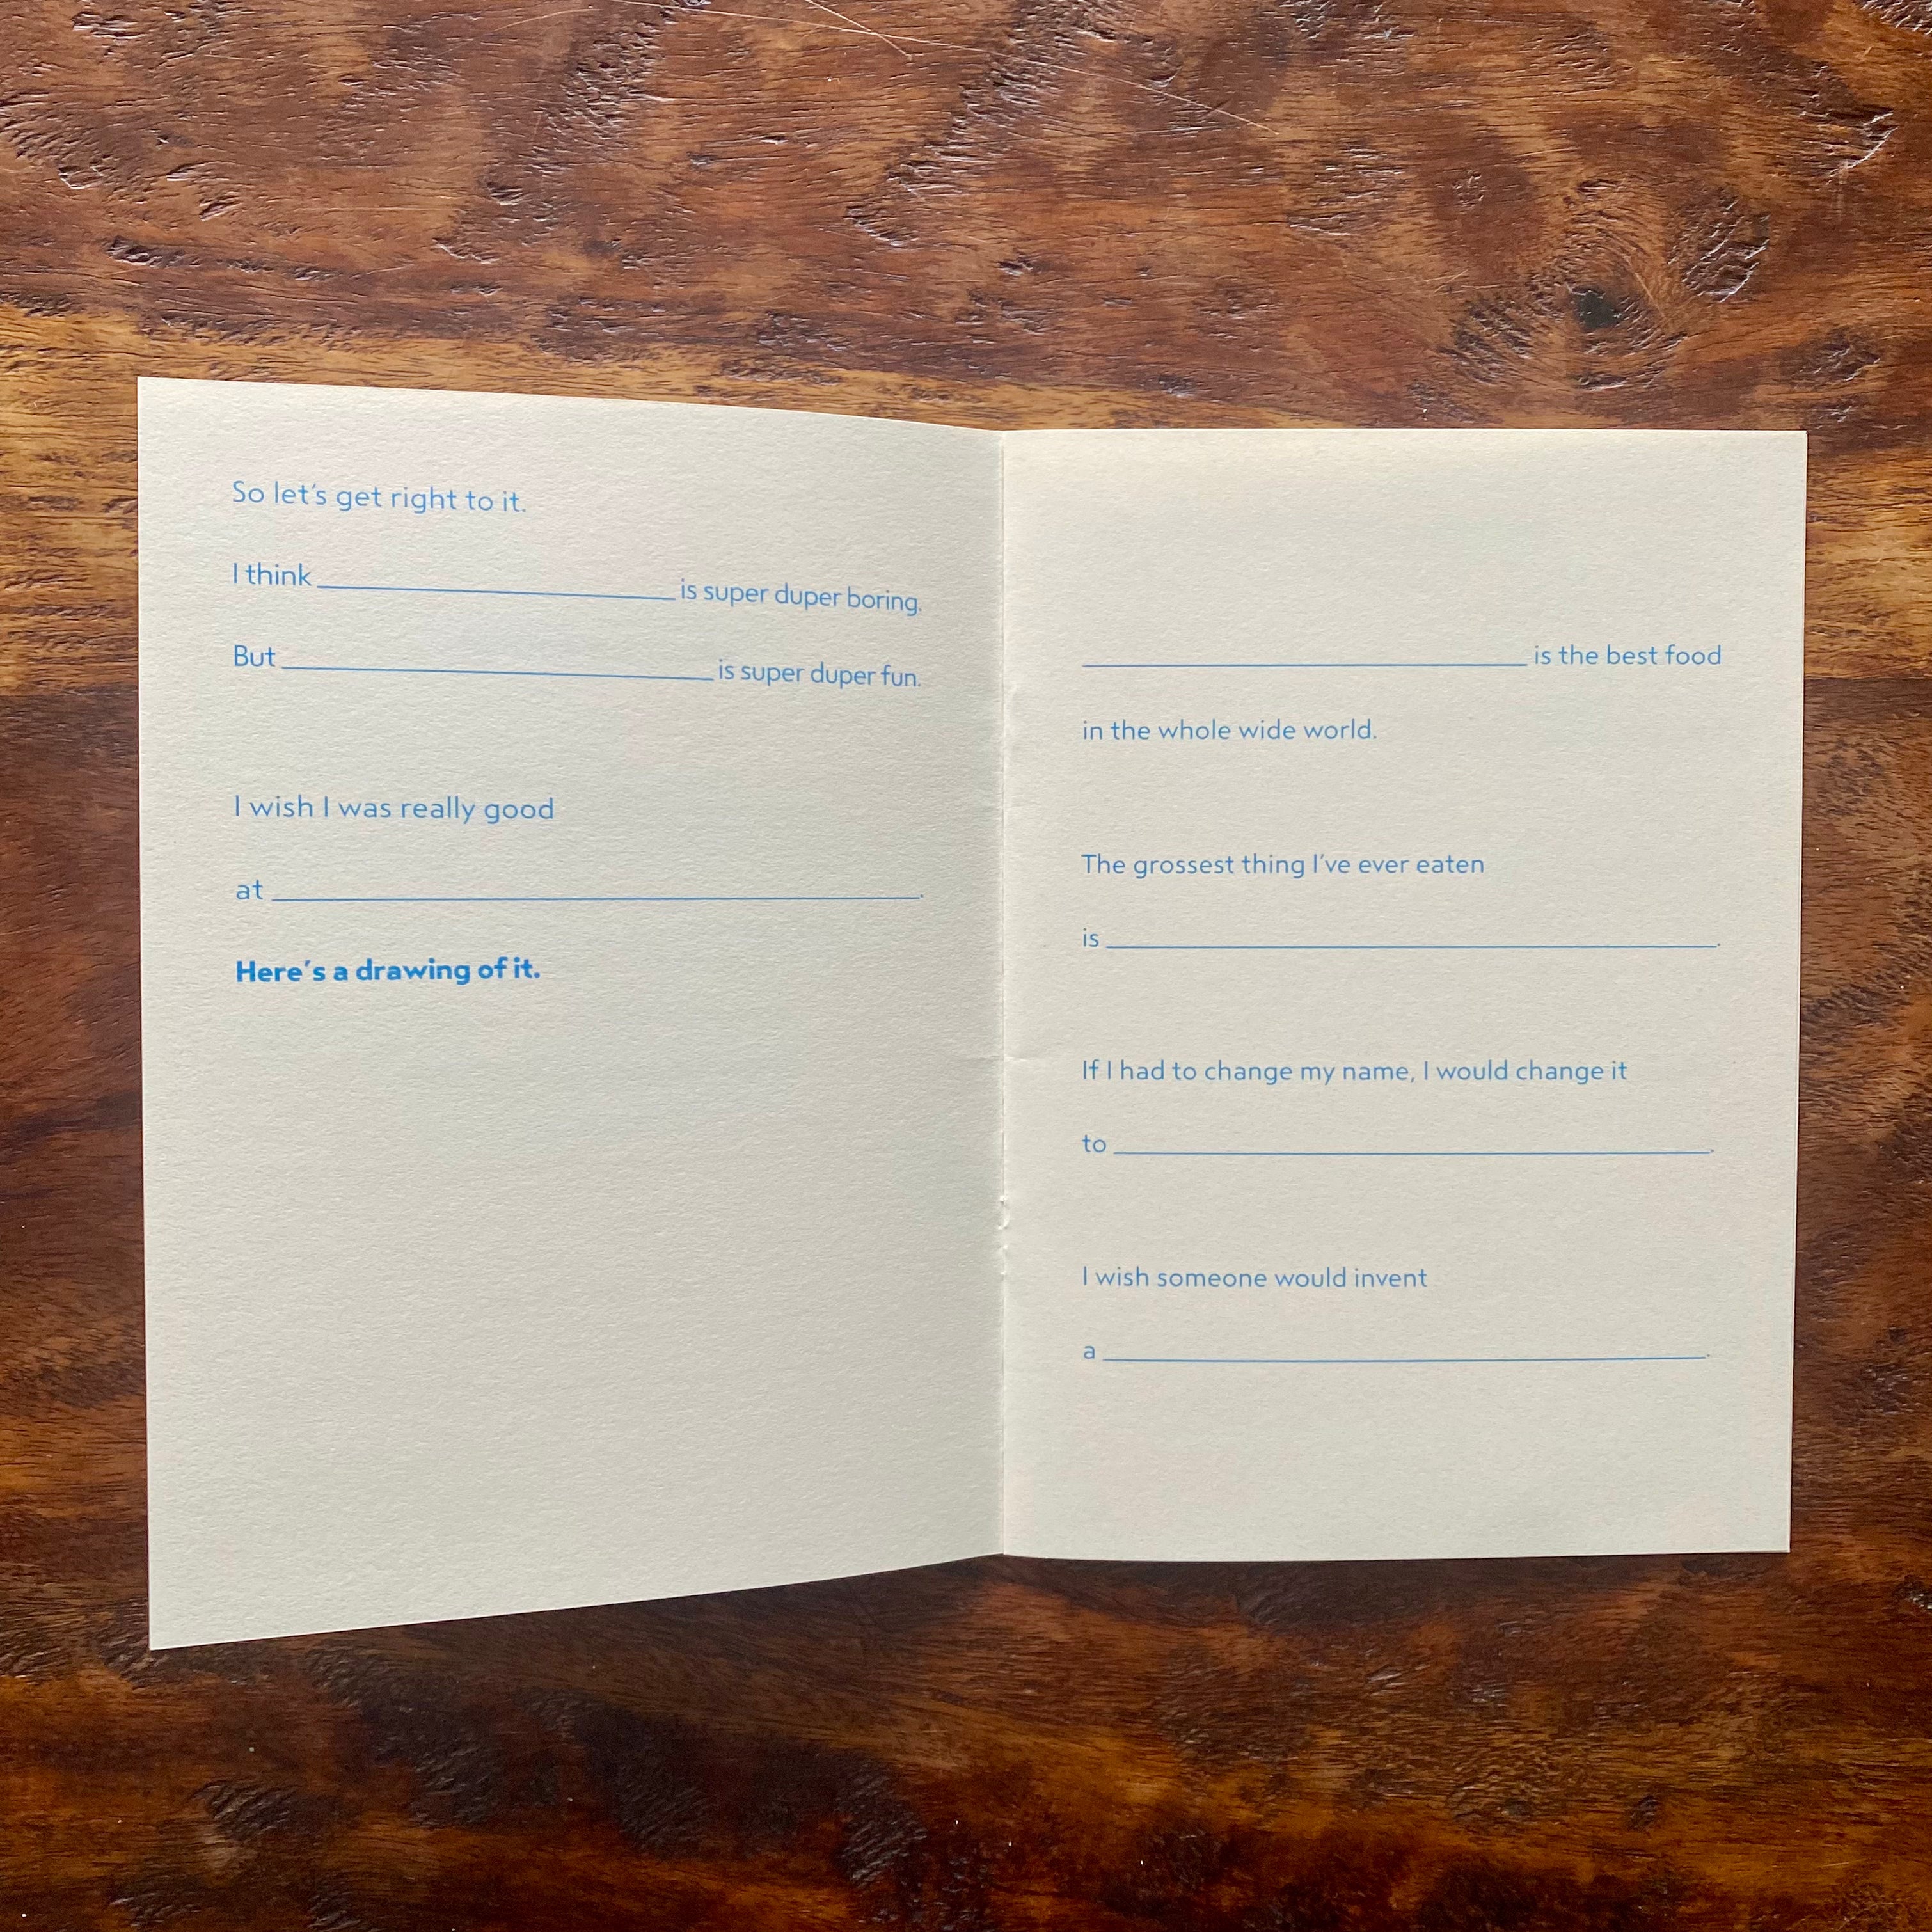 So let's get right to it.
I think ____________ is super duper boring.
But ____________ is super duper fun.
I wish I was really good
at ____________.
Here's a drawing of it.
____________ is the best food
in the whole wide world.
The grossest thing I've ever eaten
is ____________.
If I had to change my name, I would change it
to ____________.
I wish someone would invent
a ____________.